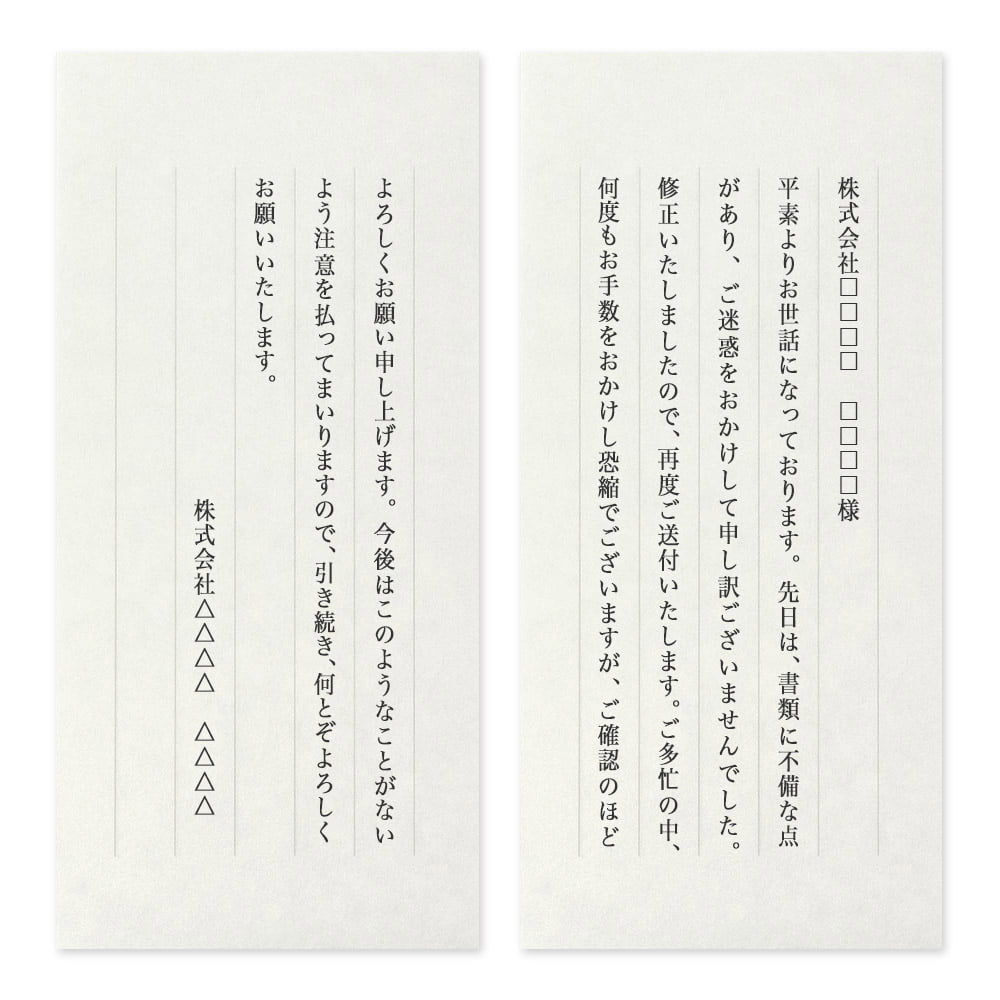 株式会社□□□□　□□□□様
平素よりお世話になっております。先日は、書類に不備な点
があり、ご迷惑をおかけして申し訳ございませんでした。
修正いたしましたので、再度ご送付いたします。ご多忙の中、
何度もお手数をおかけし恐縮でございますが、ご確認のほど
よろしくお願い申し上げます。今後はこのようなことがない
よう注意を払ってまいりますので、引き続き、何とぞよろしく
お願いいたします。
株式会社△△△△　△△△△